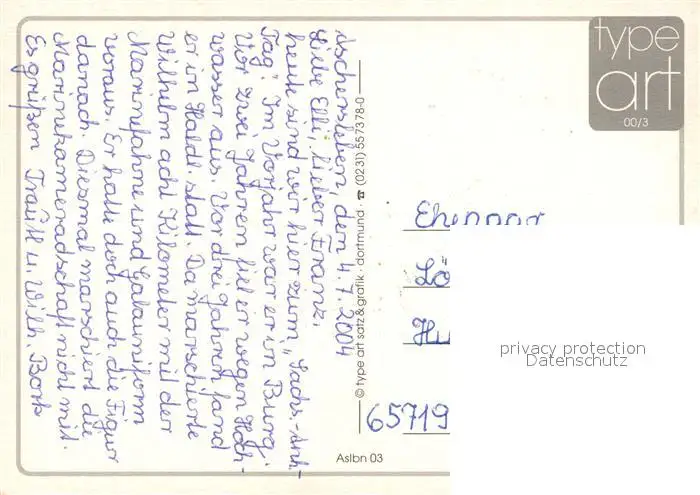 Aschersleben, den 4.7.2004
Liebe Elli, lieber Franz,
heute sind wir hier zum „Sachs.-Anh.-
Tag". Im Vorjahr war er in Burg.
Vor zwei Jahren fiel er wegen Hoch-
wasser aus. Vor drei Jahren fand
er in Hald. statt. Da marschierte
Wilhelm acht Kilometer mit der
Marinefahne und Galauniform
voraus. Er hatte doch auch die Figur
danach. Diesmal marschiert die
Marinekameradschaft nicht mit.
Es grüßen Traudl u. Wilh. Bork
© type art satz & grafik · dortmund · ☎ (0231) 557378-0
type
art
00/3
Ehepaar
Lö
Hu
65719
privacy protection
Datenschutz
Aslbn 03